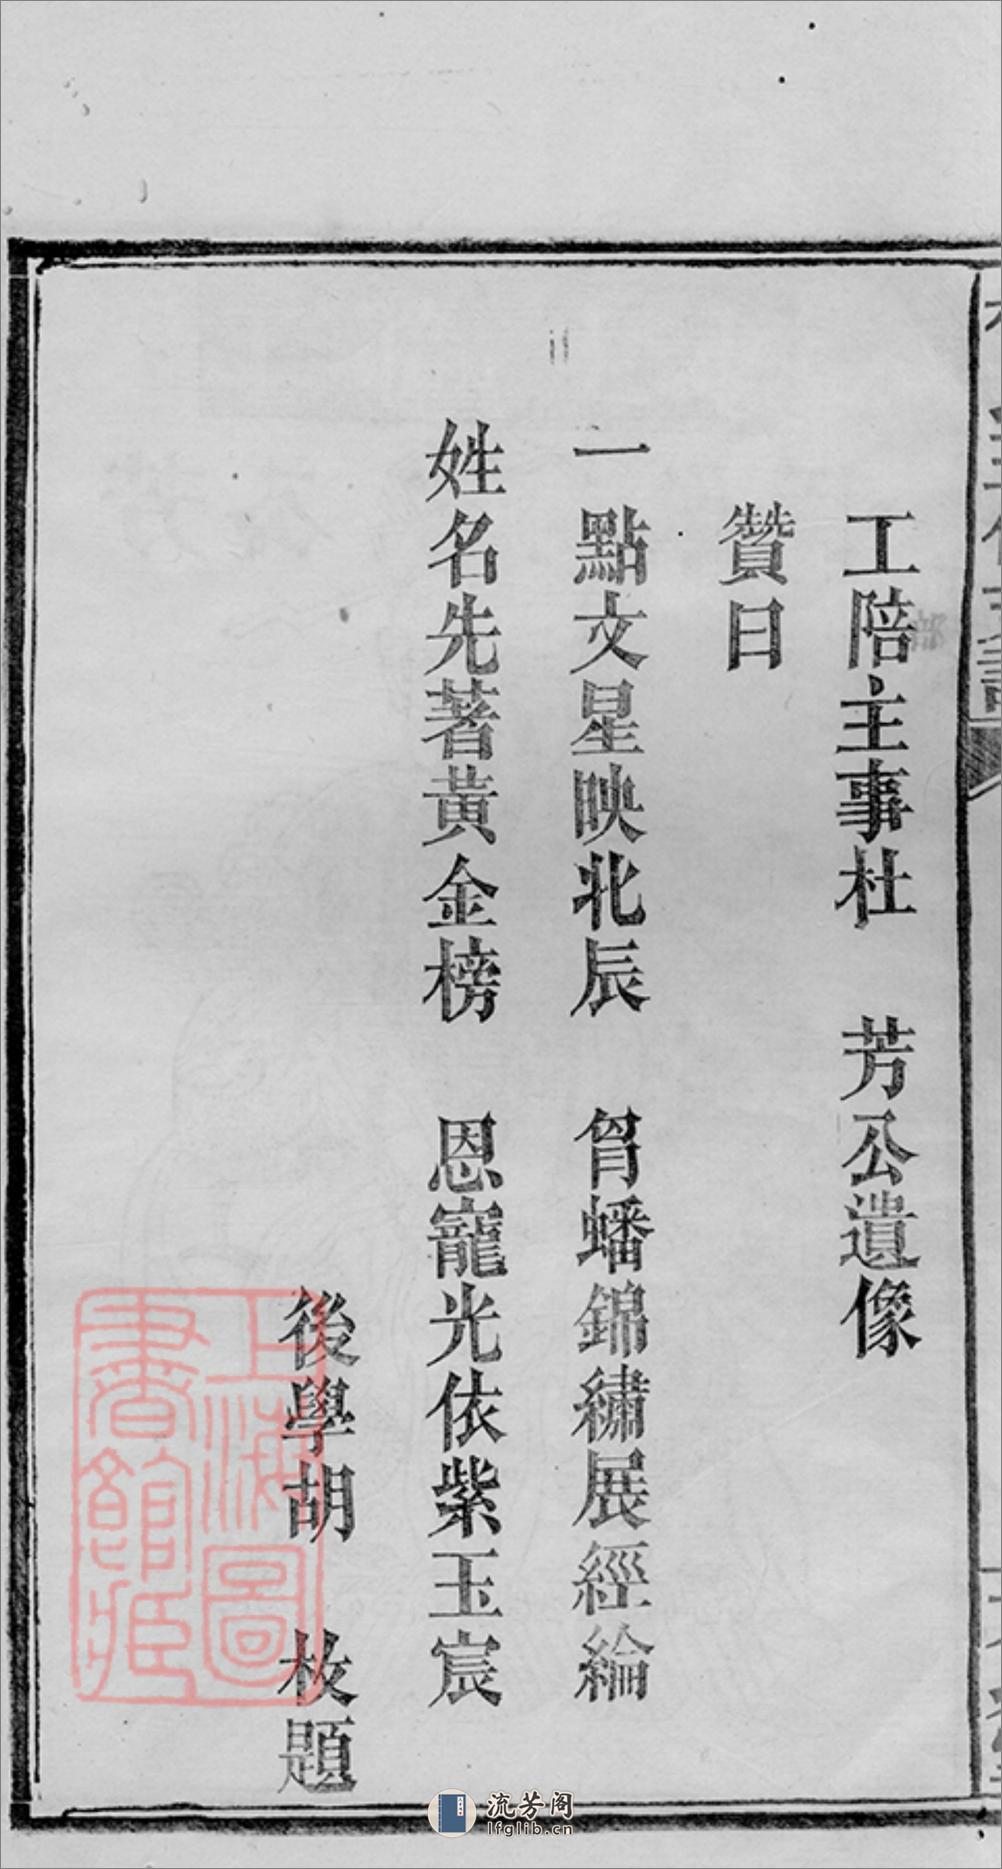 工陪主事杜　芳公遺像
贊曰
一點文星映北辰　胷蟠錦繡展經綸
姓名先著黃金榜　恩寵光依紫玉宸
後學胡　枚題
上海圖書館藏
流芳阁
lfglib.cn